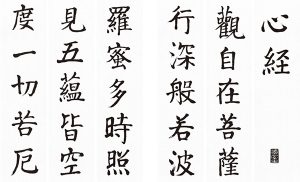 心経
觀自在菩薩
行深般若波
羅蜜多時照
見五蘊皆空
度一切苦厄